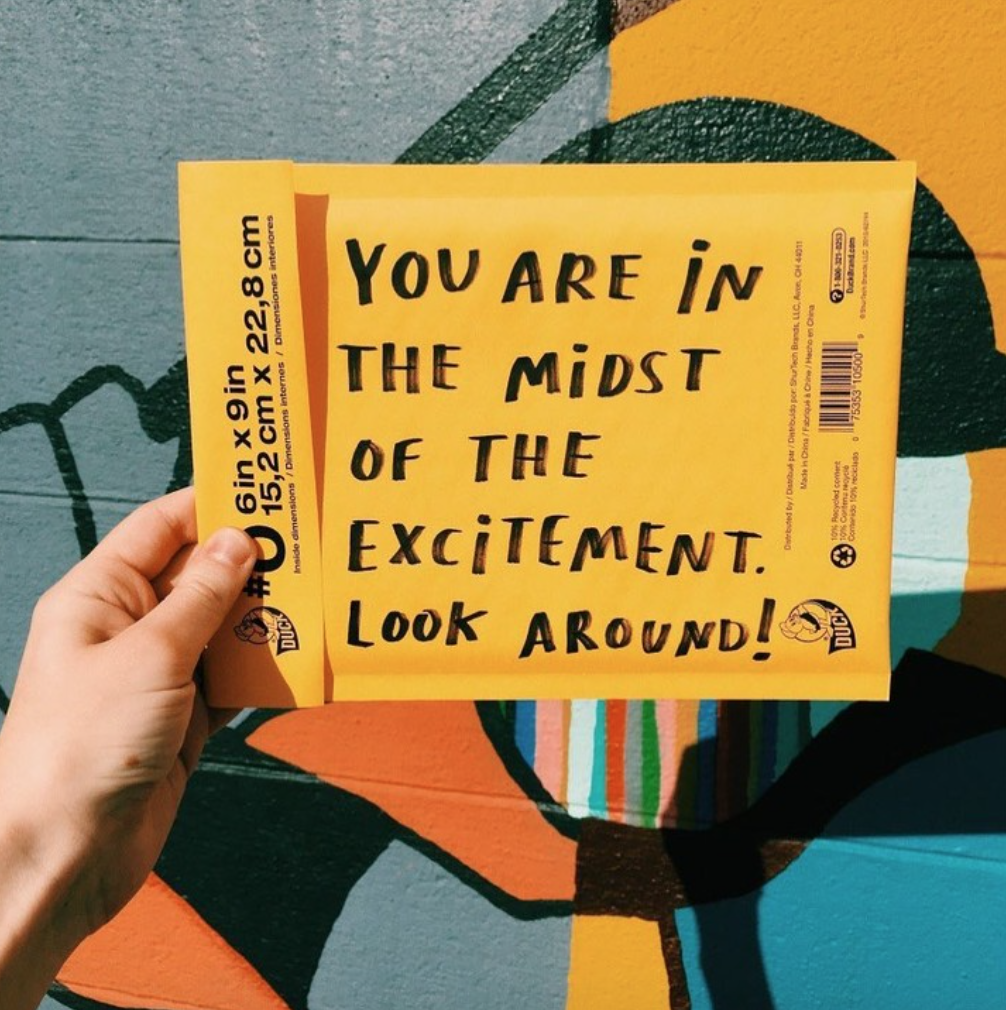 YOU ARE iN
THE MiDST
OF THE
EXCiTEMENT.
LOOK AROUND!
#0 6 in x 9 in
15,2 cm x 22,8 cm
Inside dimensions / Dimensions internes / Dimensiones interiores
DUCK
Distributed by / Distribué par / Distribuido por: ShurTech Brands, LLC, Avon, OH 44011
Made in China / Fabriqué à Chine / Hecho en China
10% Recycled content
10% Contenu recyclé
Contenido 10% reciclado
0 75353 10500 9
? 1-800-321-0253
DuckBrand.com
© ShurTech Brands LLC
DUCK